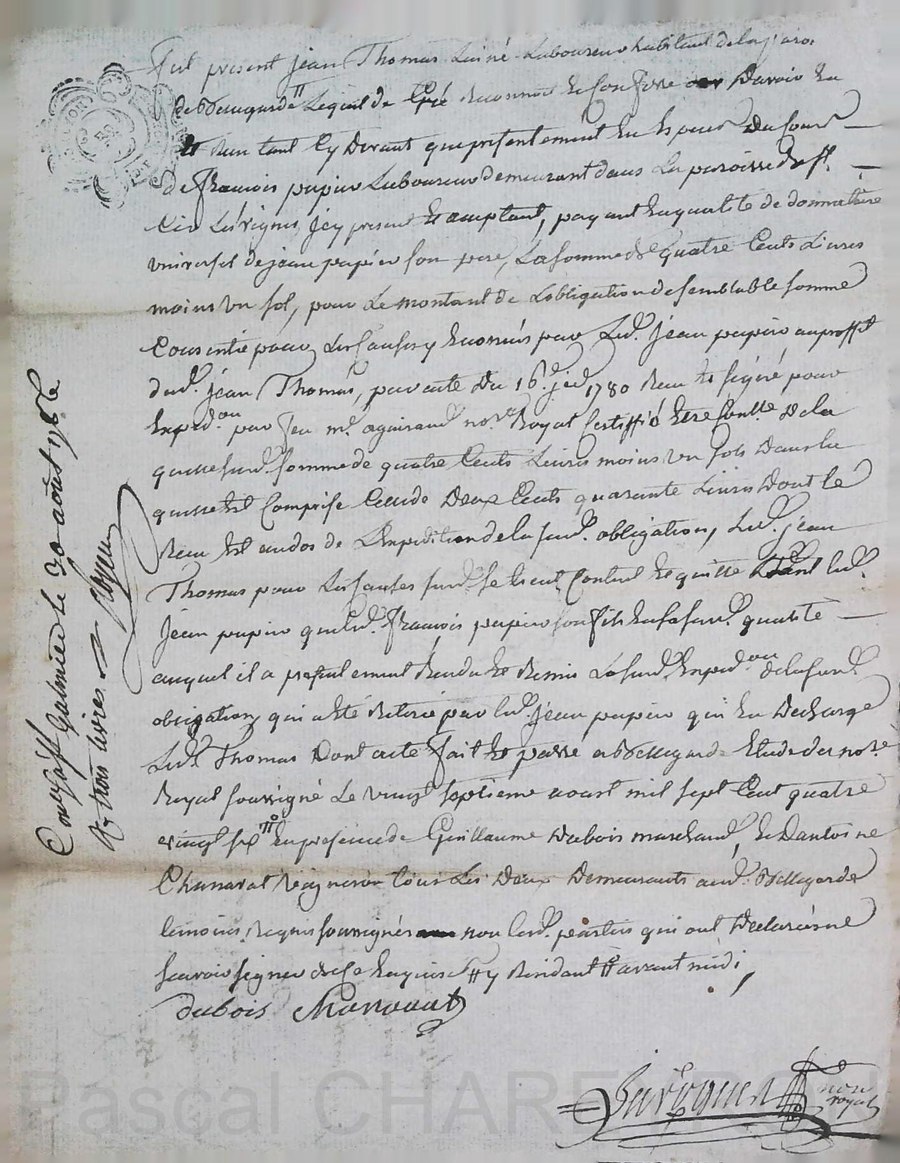 fut présent jean Thomas Lainé Laboureur habitant de la paro.
de Bellegarde Lequel de Gré Reconnoit Et Confesse avoir Eu
Et Reçu tant Cy Devant que présentement En Espèces Du Cours
de françois papier Laboureur demeurant dans La paroisse de St.
Cir Les vignes, Icy present Et acceptant, payant En qualité de donnataire
universel de jean papier Son pere, La Somme de quatre Cents Livres
moins un Sol, pour Le montant de Lobligation de Semblable Somme
Consentie pour Les Causes y Enoncés par Led. jean papier au proffit
dud. jean Thomas, par acte Du 16e. 1780 Reçu Et Signé pour
Expedon. par feu me. no.re Royal Certiffié Et
quelle Sud. Somme de quatre Cents Livres moins un Sols Dans La
quelle Est Comprise Celle de Deux Cents quarante Livres Dont Le
Reçu Est au dos de L'Expedition de la Sud. obligation, Led. jean
Thomas pour Les Causes Sud. Se tient Content Et quitte tant Led.
Jean papier que led. françois papier Son fils En sa Sud. qualité
auquel il a présentement Rendu Et Remis La Sud. Expedon. de la Sud.
obligation, qui a Eté Retirée par led. jean papier qui En Decharge
Led. Thomas Dont acte fait Et passé a Bellegarde Etude du no.re
Royal Soussigné Le vingt Septieme aoust mil Sept Cent quatre
vingt Six En présence de Guillaume Dubois marchand, Et D'antoine
tous Les Deux Demeurants aud. Bellegarde
temoins Requis Soussignés non Lesd. parties qui ont Declaré ne
Scavoir Signer de Ce Enquis avant midi,
dubois
not.
royal
Con. a St. Galmier le 30 aout 1786
R. trois livres
Pascal CHAREYRON